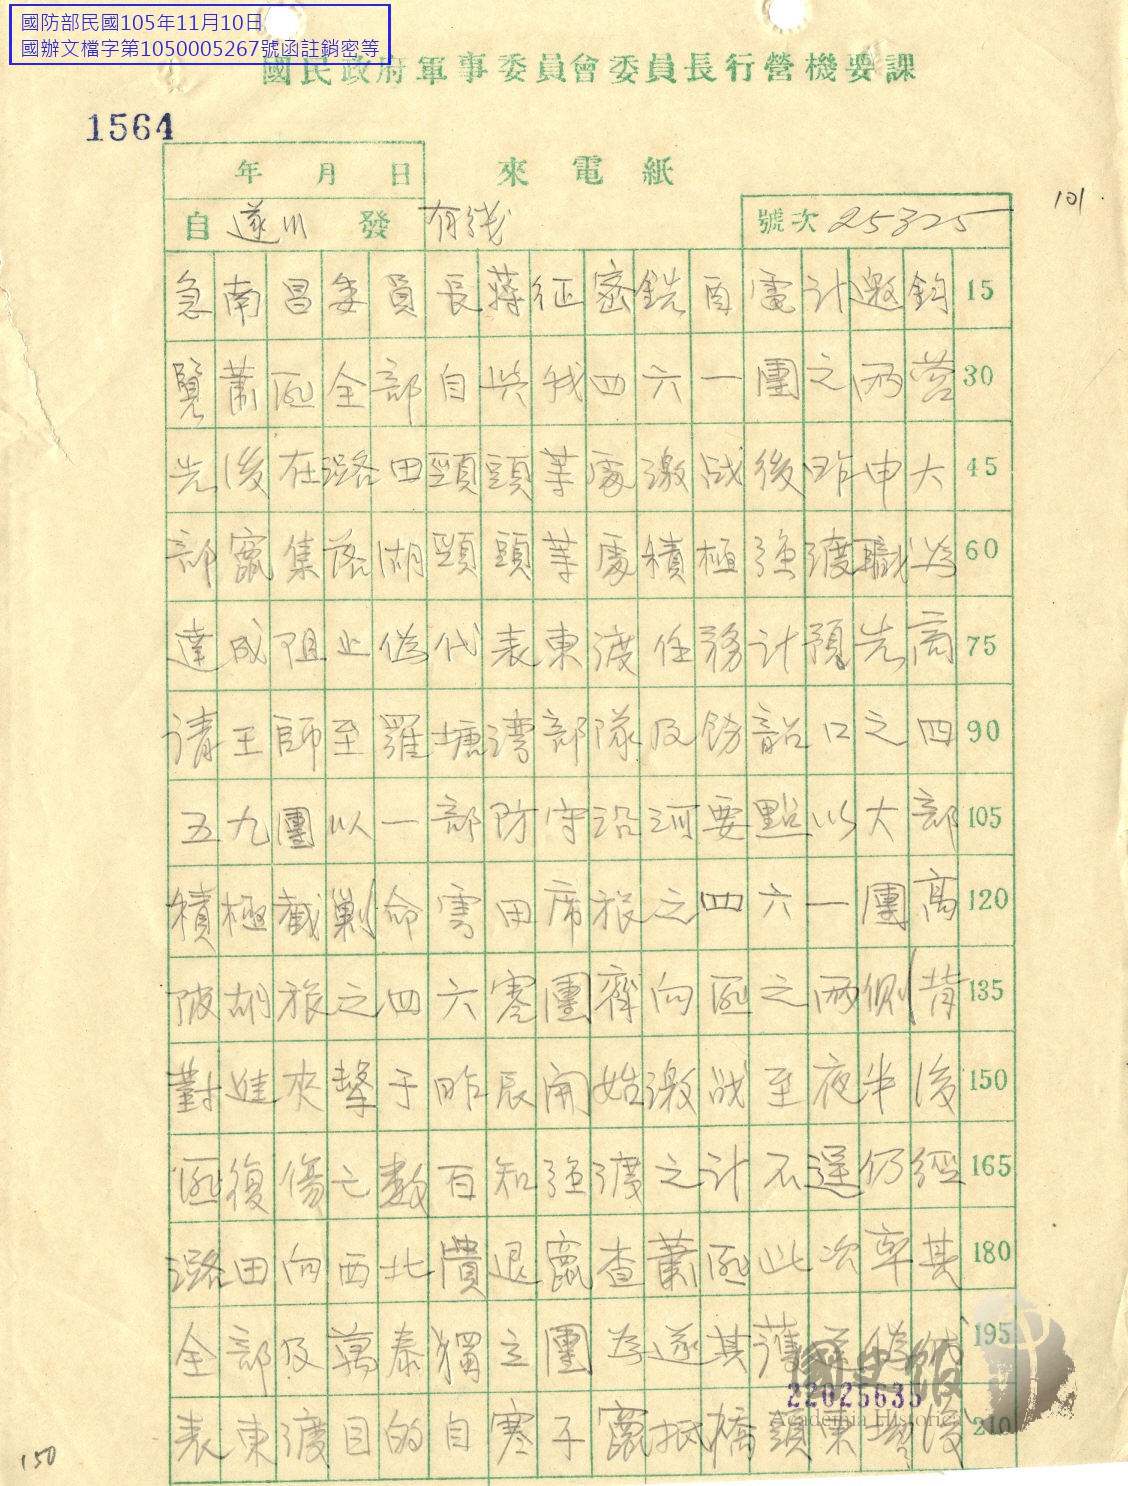 國防部民國105年11月10日
國辦文檔字第1050005267號函註銷密等
國民政府軍事委員會委員長行營機要課
1564
年 月 日
來電紙
101
自 遂川 發 有线
號次 25325
急南昌委員長蔣征密銑酉電計邀鈞 15
覽蕭匪全部自與我四六一團之兩營 30
先後在潞田頭等處激战後昨申大 45
部竄集落湖頭等處積極強渡職為 60
達成阻止偽代表東渡任務計預先商 75
请王師至羅塘湾部隊及飭韶口之四 90
五九團以一部防守沿河要點以大部 105
積極截剿命雩田席旅之四六一團高 120
陂胡旅之四六 團齊向匪之兩側背 135
對進夾擊于昨辰開始激战至夜半後 150
匪復傷亡数百知強渡之计不逞仍經 165
潞田向西北潰退竄查蕭匪此次率其 180
全部及萬泰獨立團為遂其護 偽代 195
表東渡目的自寒子竄抵橋頭東 後 210
國史館
Academia Historica
22025635
150